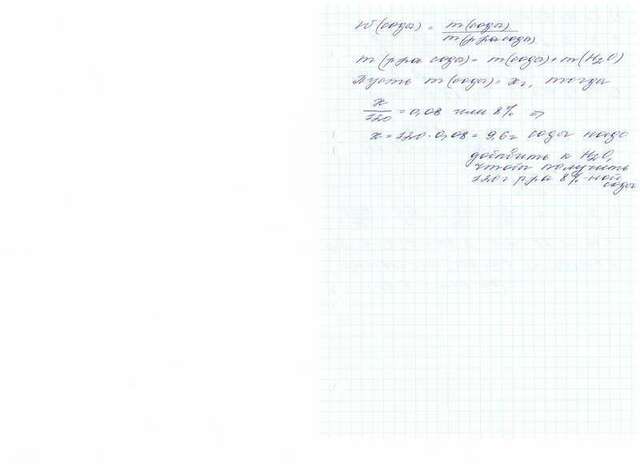 W(соды) = m(соды)
m(р-ра соды)
m(р-ра соды) = m(соды) + m(H2O)
Пусть m(соды) = x г, тогда
x/120 = 0,08 или 8% ⇒
x = 120 · 0,08 = 9,6 г соды надо
добавить к H2O,
чтобы получить
120 г р-ра 8%-ной
соды